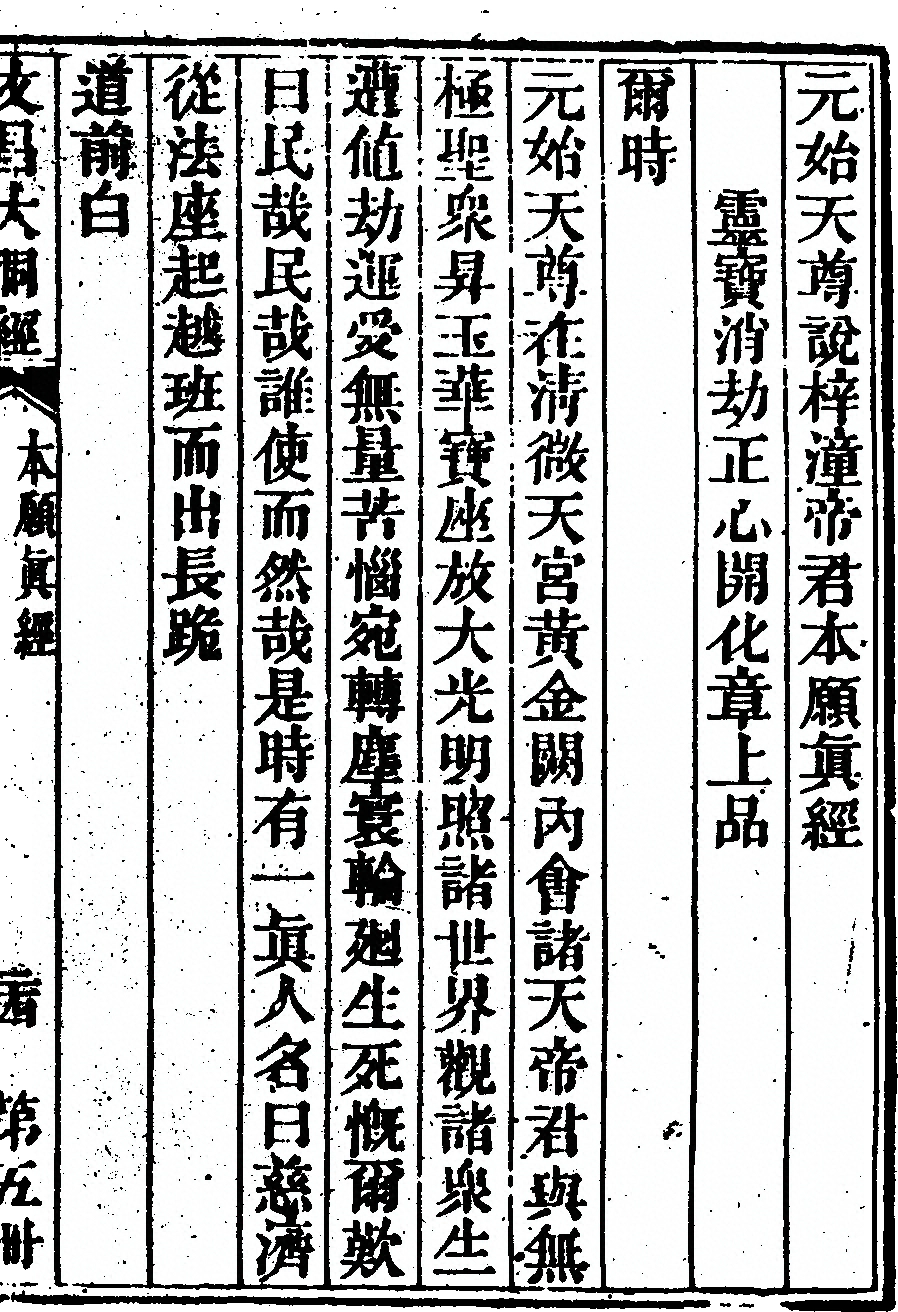 元始天尊說梓潼帝君本願眞經
靈寶消劫正心開化章上品
爾時
元始天尊在清微天宮黃金闕內會諸天帝君與無
極聖衆昇玉華寶座放大光明照諸世界觀諸衆生
遭値劫運受無量苦惱宛轉塵寰輪廻生死慨爾歎
曰民哉民哉誰使而然哉是時有一眞人名曰慈濟
從法座起越班而出長跪
道前白
文昌大洞經 本願眞經 第五冊